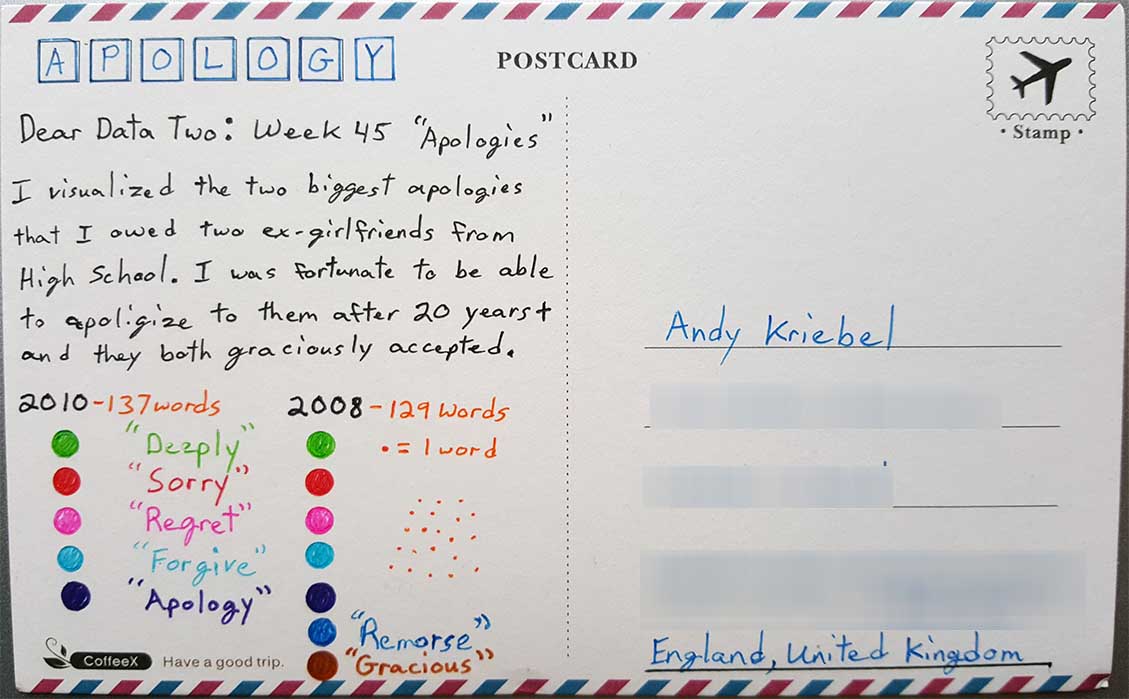 APOLOGY
POSTCARD
• Stamp •
Dear Data Two: Week 45 "Apologies"
I visualized the two biggest apologies
that I owed two ex-girlfriends from
High School. I was fortunate to be able
to apoligize to them after 20 years+
and they both graciously accepted.
2010 - 137 words
"Deeply"
"Sorry"
"Regret"
"Forgive"
"Apology"
2008 - 129 words
• = 1 word
"Remorse"
"Gracious"
CoffeeX Have a good trip.
Andy Kriebel
England, United Kingdom